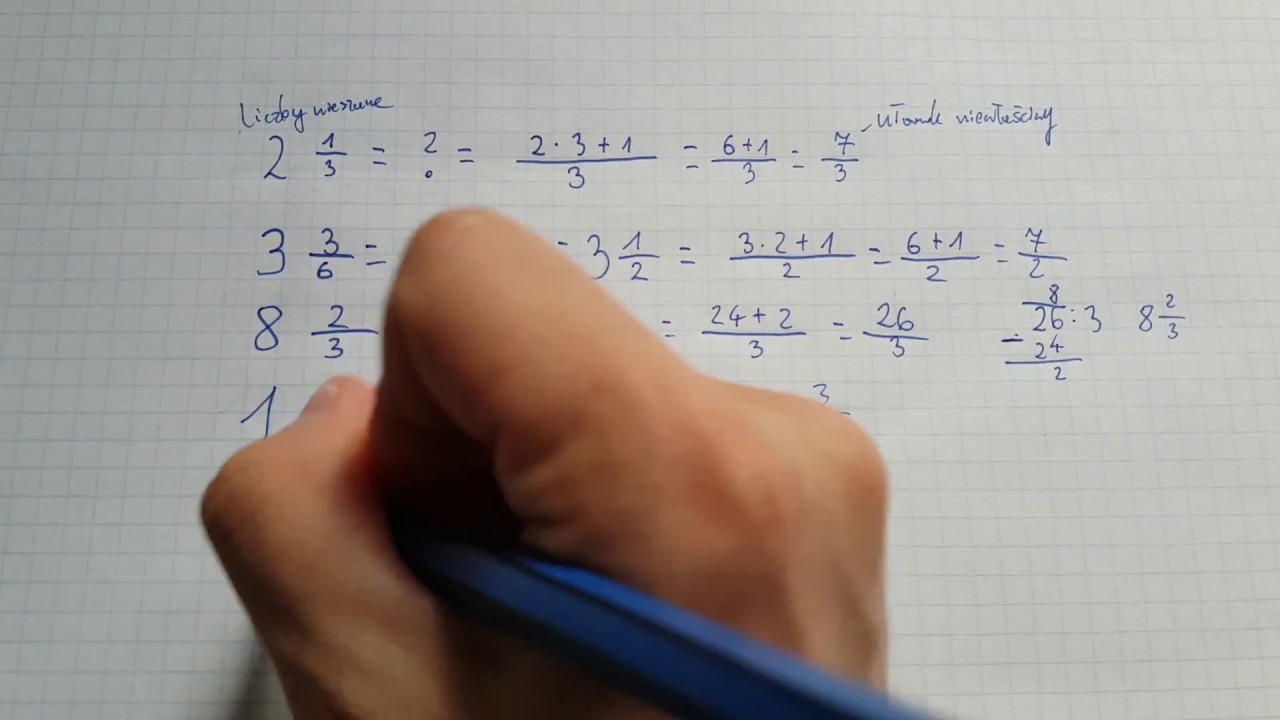 Liczby mieszane
2 1/3 = ? = 2·3+1/3 = 6+1/3 = 7/3 ułamek niewłaściwy
3 3/6 = = 3 1/2 = 3·2+1/2 = 6+1/2 = 7/2
8 2/3 = 24+2/3 = 26/3
8
26:3 8 2/3
- 24
2
1 3